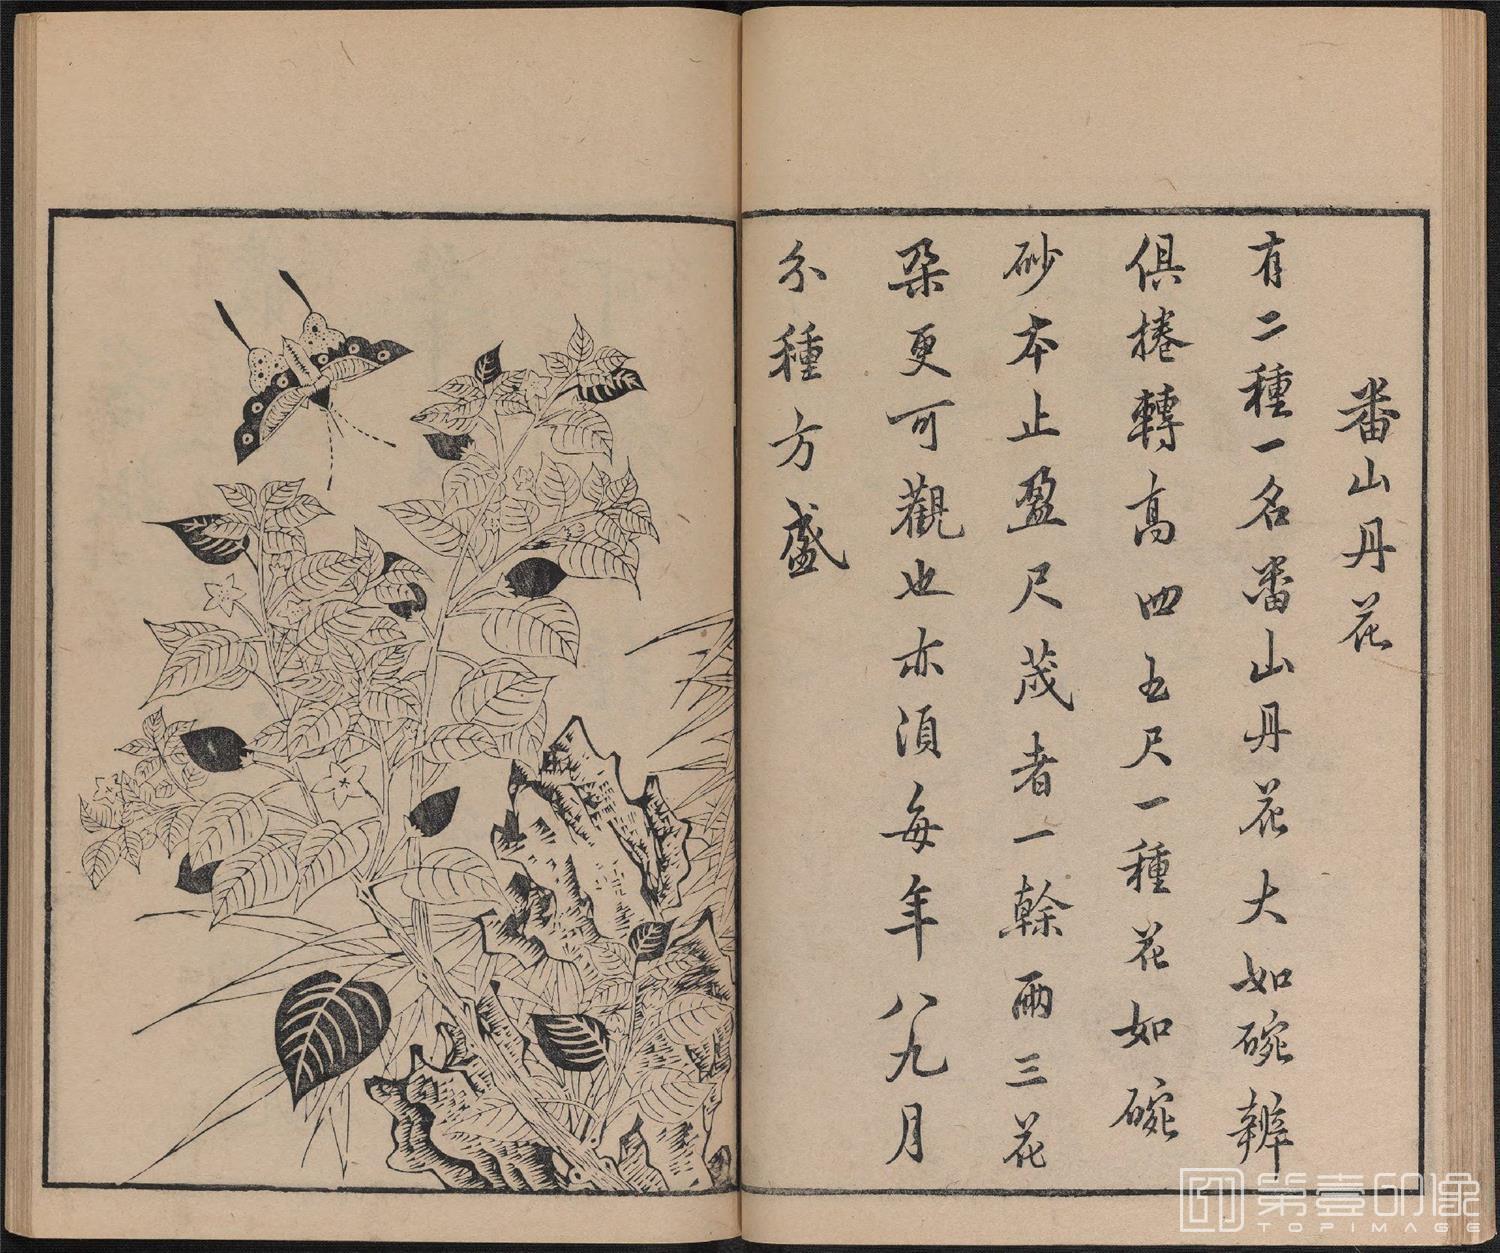 番山丹花
有二種一名番山丹花大如碗瓣
俱捲轉高四五尺一種花如碗
砂本止盈尺茂者一幹兩三花
朵更可觀也亦須每年八九月
分種方盛
第壹印像
TOPIMAGE